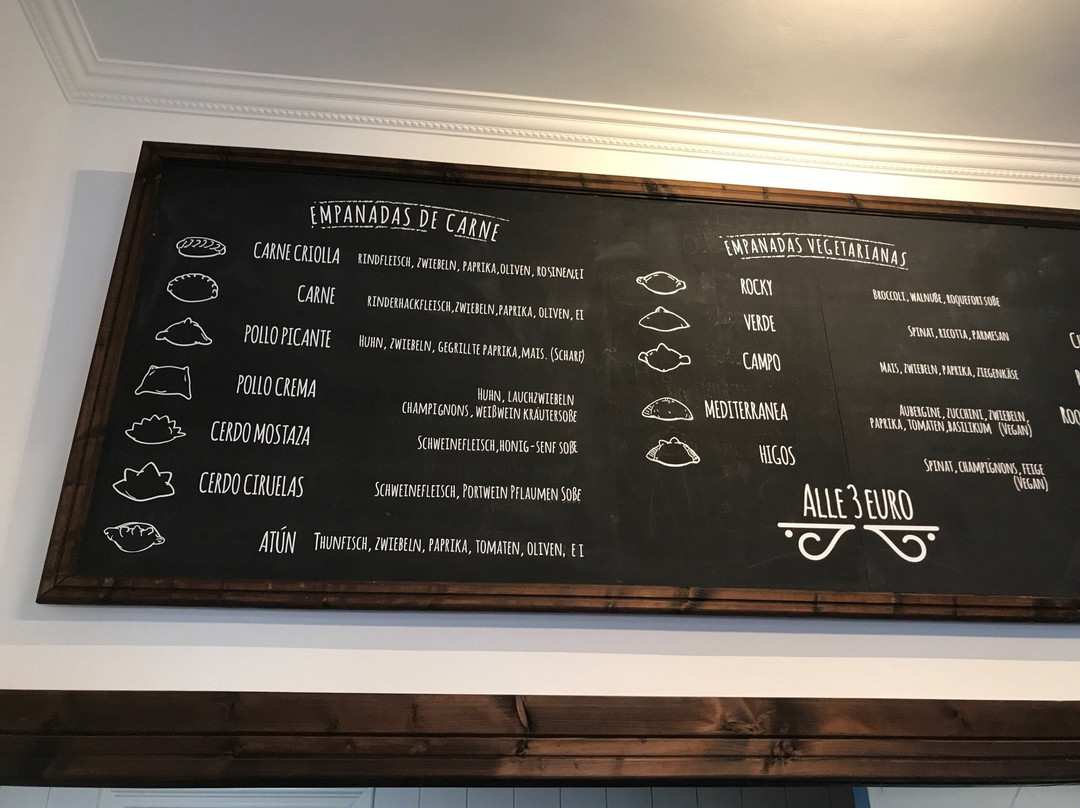 EMPANADAS DE CARNE
CARNE CRIOLLA RINDFLEISCH, ZWIEBELN, PAPRIKA, OLIVEN, ROSINEN, EI
CARNE RINDERHACKFLEISCH, ZWIEBELN, PAPRIKA, OLIVEN, EI
POLLO PICANTE HUHN, ZWIEBELN, GEGRILLTE PAPRIKA, MAIS. (SCHARF)
POLLO CREMA HUHN, LAUCHZWIEBELN
CHAMPIGNONS, WEIßWEIN KRÄUTERSOßE
CERDO MOSTAZA SCHWEINEFLEISCH, HONIG-SENF SOßE
CERDO CIRUELAS SCHWEINEFLEISCH, PORTWEIN PFLAUMEN SOßE
ATÚN THUNFISCH, ZWIEBELN, PAPRIKA, TOMATEN, OLIVEN, EI
EMPANADAS VEGETARIANAS
ROCKY BROCCOLI, WALNUßE, ROQUEFORT SOßE
VERDE SPINAT, RICOTTA, PARMESAN
CAMPO MAIS, ZWIEBELN, PAPRIKA, ZIEGENKÄSE
MEDITERRANEA AUBERGINE, ZUCCHINI, ZWIEBELN,
PAPRIKA, TOMATEN, BASILIKUM (VEGAN)
HIGOS SPINAT, CHAMPIGNONS, FEIGE
(VEGAN)
ALLE 3 EURO